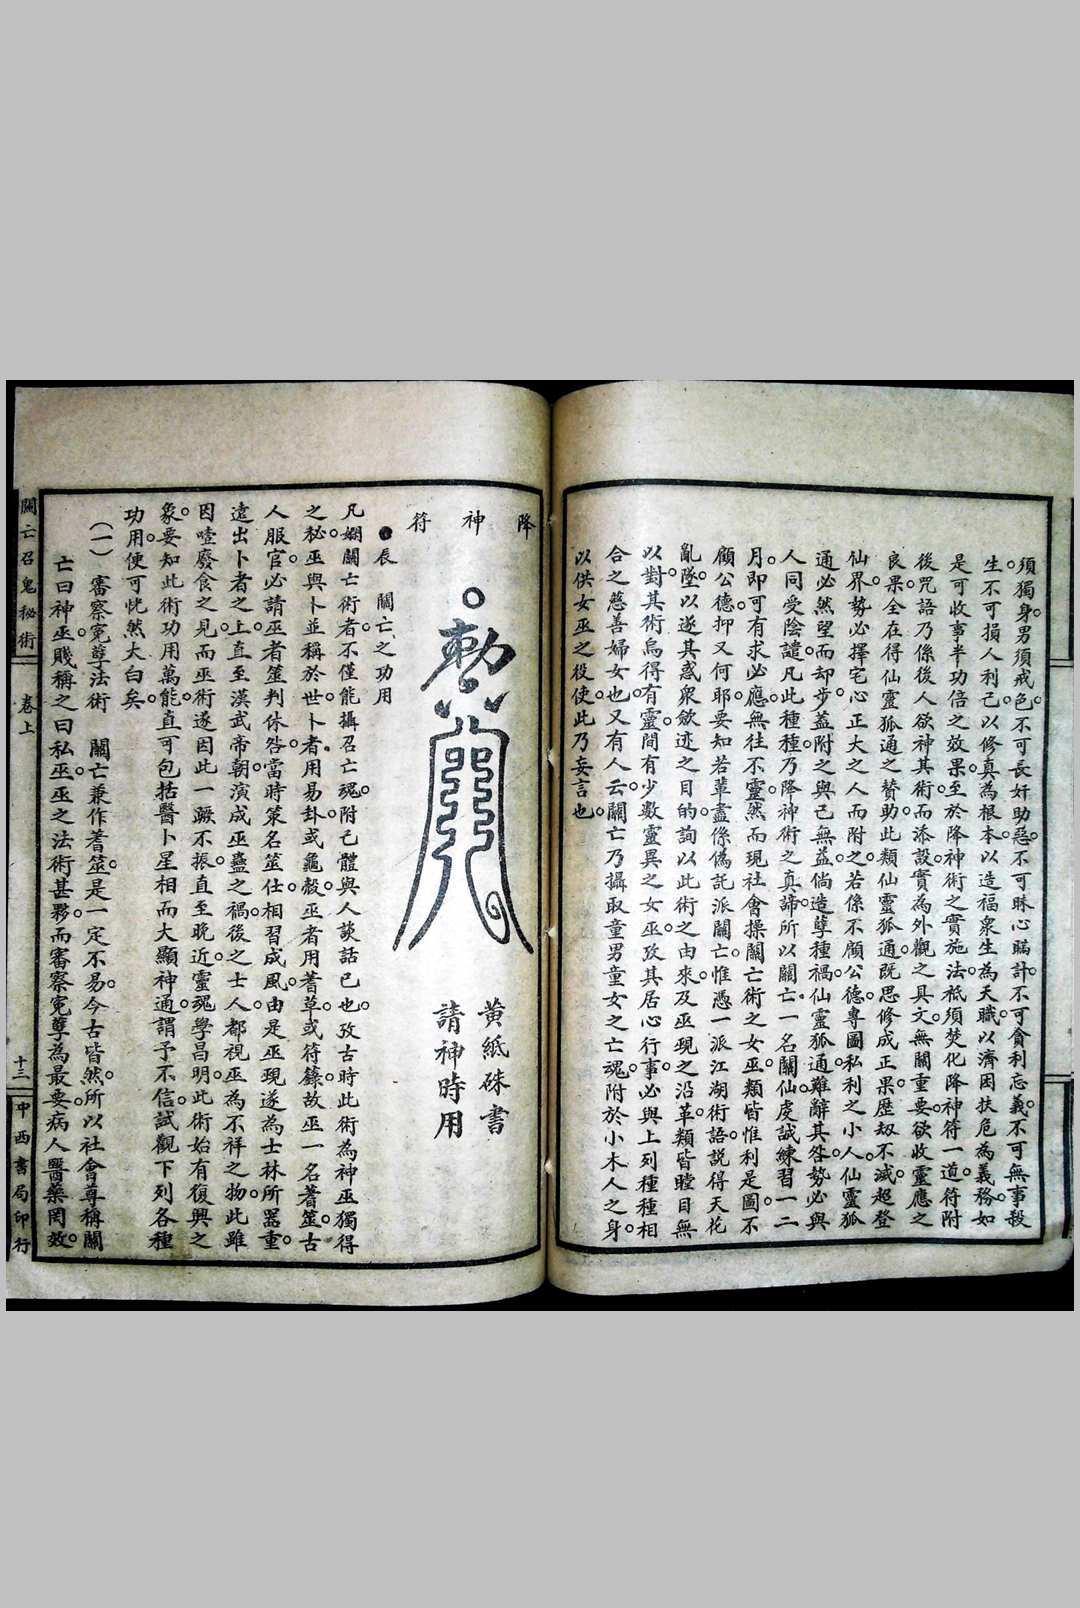 須獨身。男須戒色。不可長奸助惡。不可昧心瞞計。不可貪利忘義。不可無事殺
生。不可損人利己。以修真為根本。以造福眾生為天職。以濟困扶危為義務。如
是可收事半功倍之效果。至於降神術之實施法。祇須焚化降神符一道。符附
後咒語乃係後人欲神其術而添設。實為外觀之具文。無關重要。欲收靈應之
良果。全在得仙靈狐通之贊助。此類仙靈狐通。既思修成正果。歷劫不滅。超登
仙界。勢必擇宅心正大之人而附之。若係不顧公德。專圖私利之小人。仙靈狐
通必然望而却步。蓋附之與己無益。倘造孽種禍。仙靈狐通難辭其咎。勢必與
人同受陰譴。凡此種種。乃降神術之真諦。所以關亡一名關仙。虔誠練習一二
月。即可有求必應。無往不靈。然而現社會操關亡術之女巫。類皆惟利是圖。不
顧公德。抑又何耶。要知若輩盡係偽託派關亡。惟憑一派江湖術語。說得天花
亂墜。以遂其惑衆歛迹之目的。詢以此術之由來。及巫覡之沿革。類皆瞠目無
以對。其術烏得有靈。間有少數靈異之女巫。攷其居心行事。必與上列種種相
合之慈善婦女也。又有人云。關亡乃攝取童男童女之亡魂。附於小木人之身。
以供女巫之役使。此乃妄言也。
降神符
敕
黄紙硃書
請神時用
●辰 關亡之功用
凡嫻關亡術者。不僅能攝召亡魂。附己體與人談話已也。攷古時此術為神巫獨得
之秘。巫與卜並稱於世。卜者用易卦或龜殼。巫者用蓍草或符籙。故巫一名蓍筮。古
人服官。必請巫者筮判休咎。當時策名筮仕。相習成風。由是巫覡遂為士林所器重。
遠出卜者之上。直至漢武帝朝。演成巫蠱之禍。後之士人。都視巫為不祥之物。此雖
因噎廢食之見。而巫術遂因此一蹶不振。直至晚近。靈魂學昌明。此術始有復興之
象。要知此術功用萬能。直可包括醫卜星相而大顯神通。謂予不信。試觀下列各種
功用。便可恍然大白矣。
(一)審察冤孽法術 關亡兼作蓍筮。是一定不易。今古皆然。所以社會尊稱關
亡曰神巫。賤稱之曰私巫。巫之法術甚夥。而審察冤孽為最要。病人醫藥罔效。
關亡召鬼秘術 卷上 十三 中西書局印行